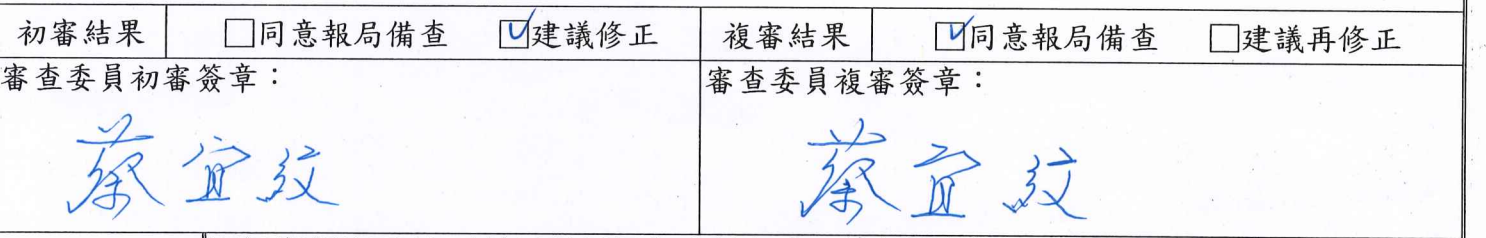 初審結果 □同意報局備查 ☑建議修正 複審結果 ☑同意報局備查 □建議再修正
審查委員初審簽章： 審查委員複審簽章：
蔡宜紋 蔡宜紋